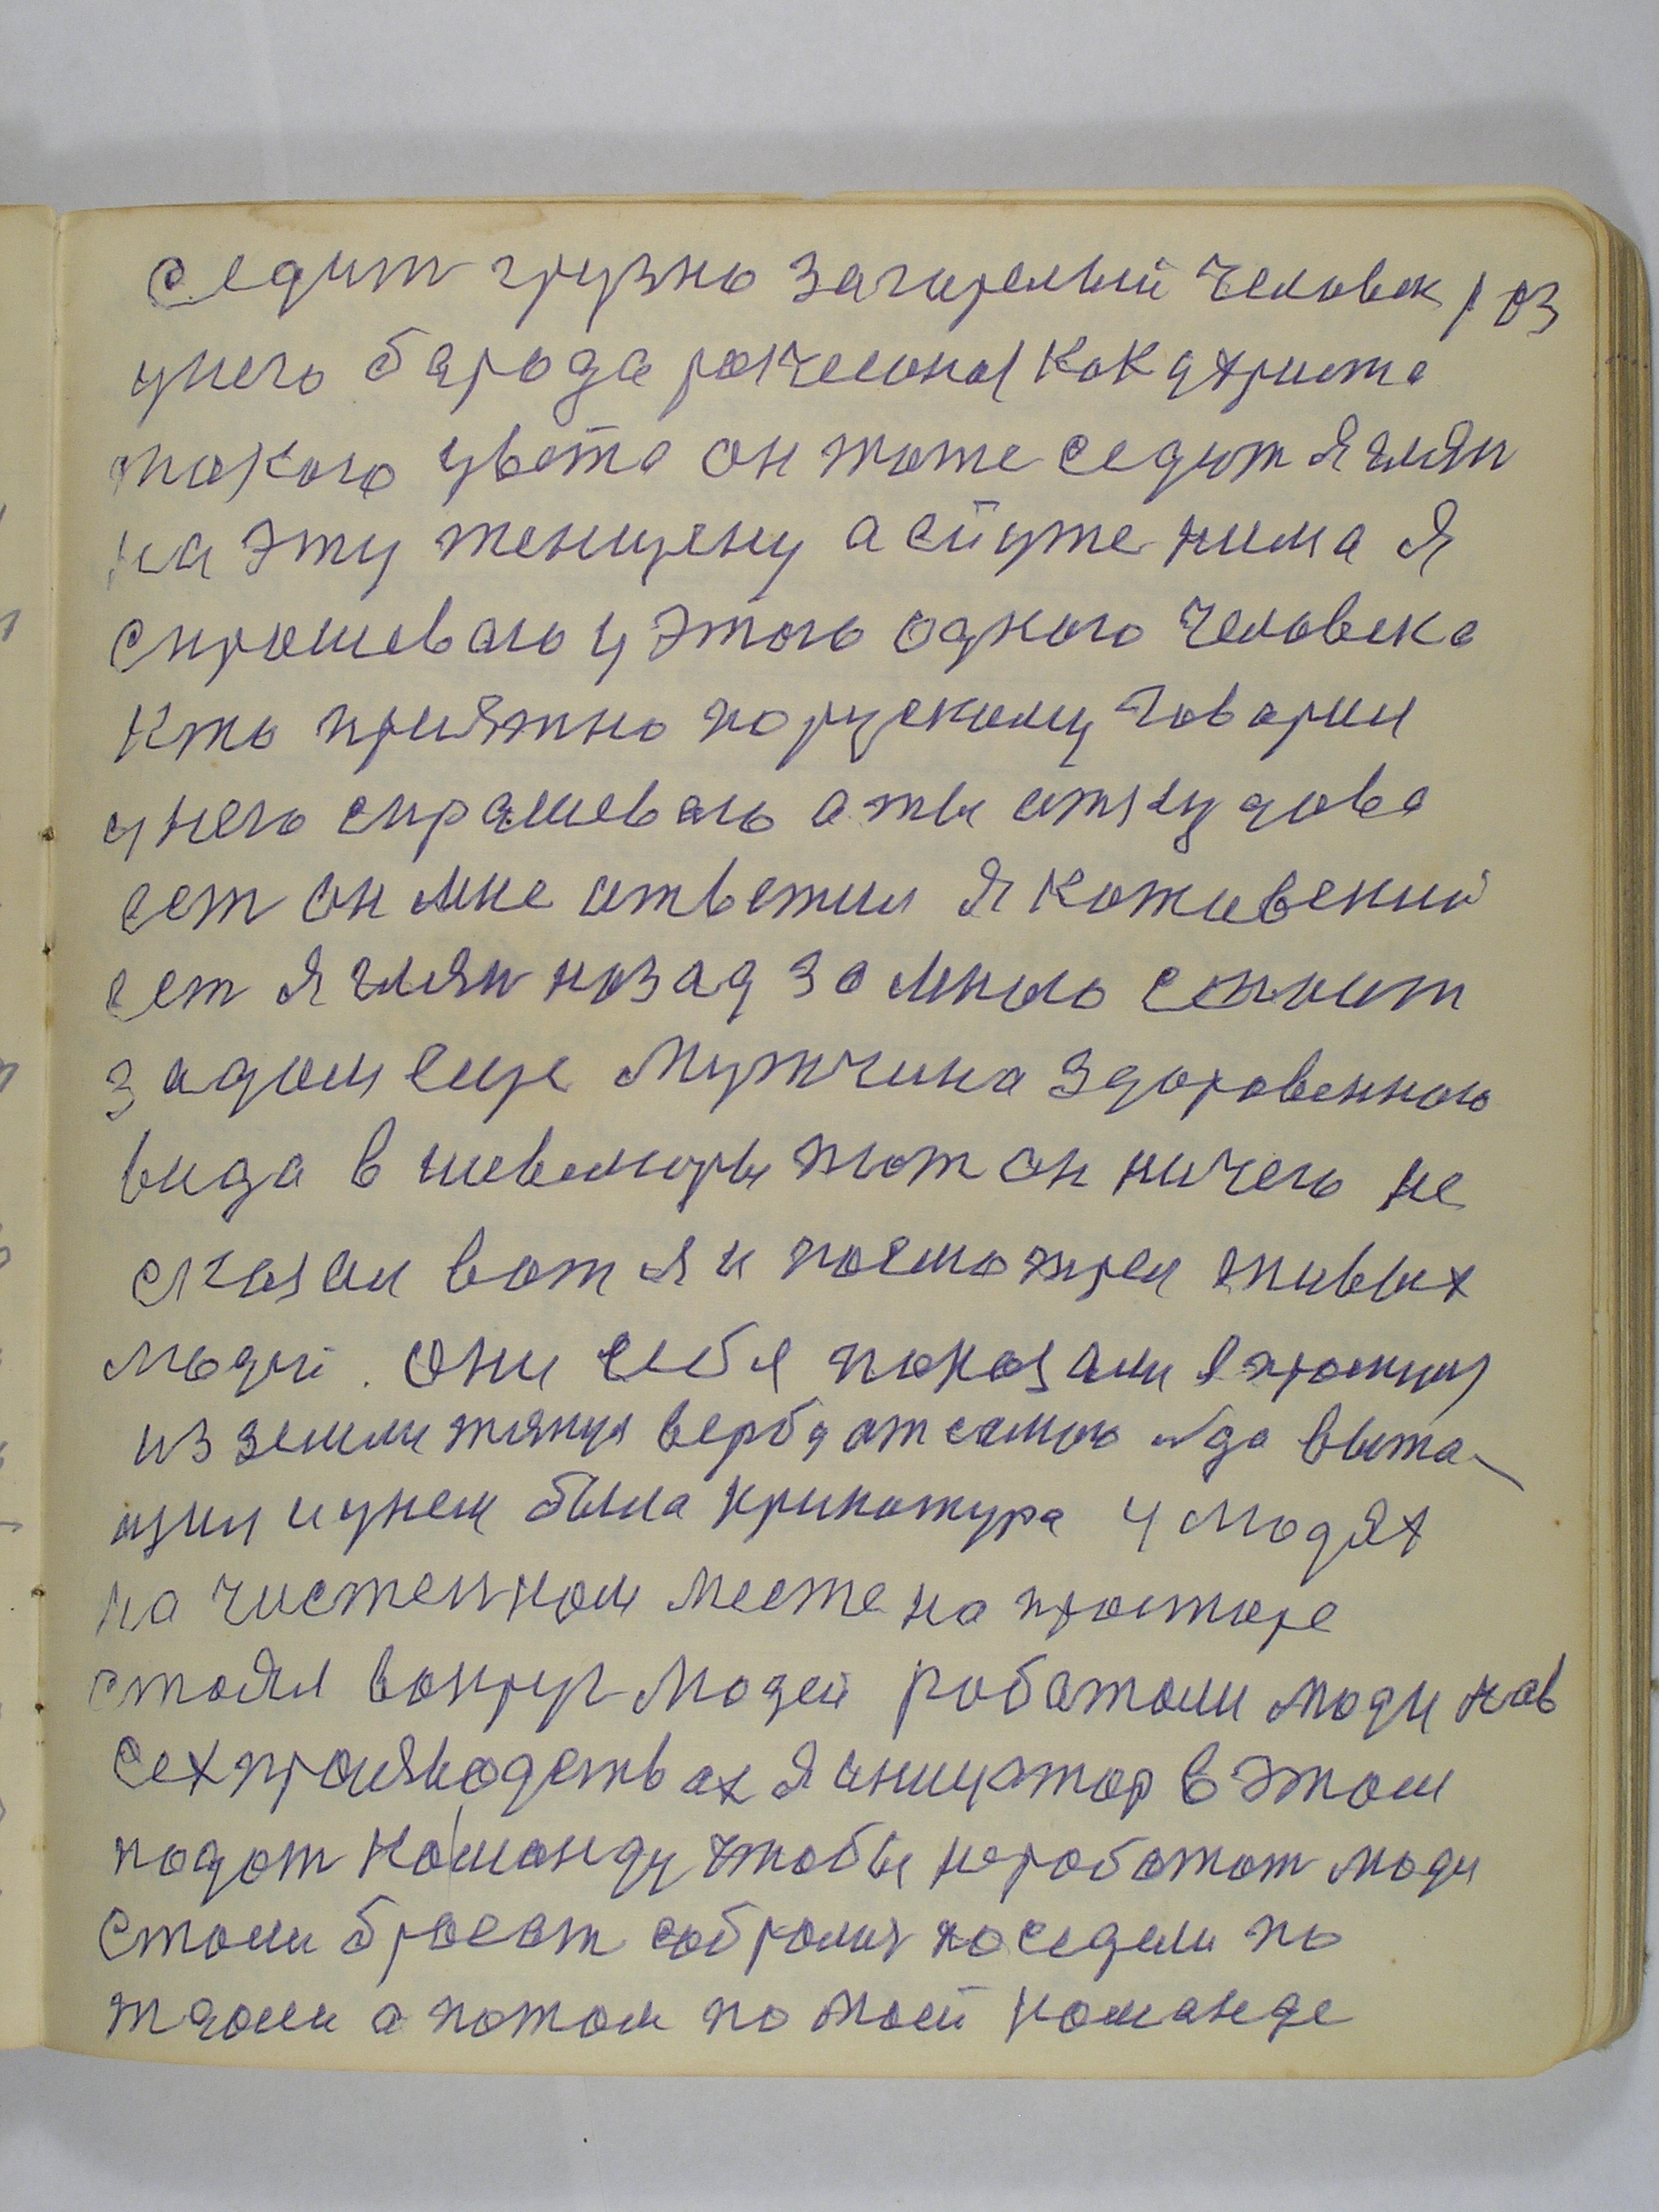 седит грузно загирелый человек 103
унего барода рочесоная как ухриста
такого цвета он тоже седит я глян
на эту женщену а ей уже нима я
спрошеваю у этого одного человека
кто приятно по рускому говарил
унего спрашеваю а ты аткудова
сет он мне атветил я
сет я глян назад за мною стоит
задом еще мужчина здоровенного
вида в тот он ничего не
сказал вот я и посмотрел живых
людй. они себя показали
из земли тянул вербу от самого
щил и унем была у людях
на чистенном месте на просторе
стоял вокруг людей работали люди нав
сех производствах я в этом
подот команду чтобы неработат люди
стали бросат собролис поседели по
ждали а потом по моей команде